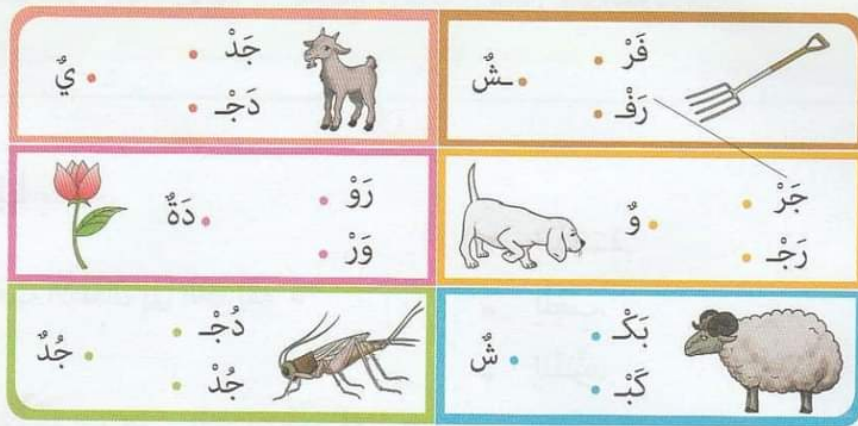 فَرْ
رَفْـ
ـشٌ
جَدْ
دَجْـ
يٌ
جَرْ
رَجْـ
وٌ
رَوْ
وَرْ
دَةٌ
بَكْـ
كَبْـ
شٌ
دُجْـ
جُدْ
جُدٌ